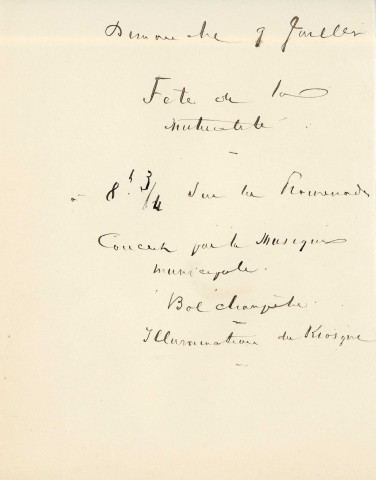 Dimanche 9 Juillet
Fete de la
Mutualité
à 8h 3/4 Sur les Promenades
Concert par la Musique
municipale.
Bal champêtre.
Illumination du Kiosque